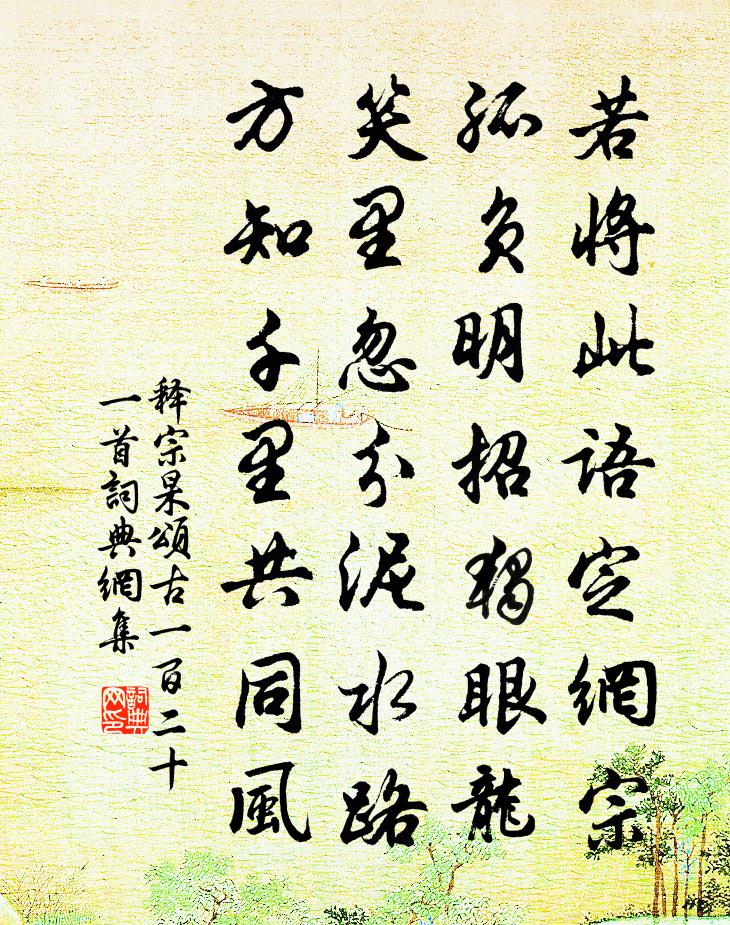 若將此語定網宗
孤負明招獨眼龍
笑里忽分泥水路
方知千里共同風
释宗杲頌古一百二十
一首詞典網集
詞典網印